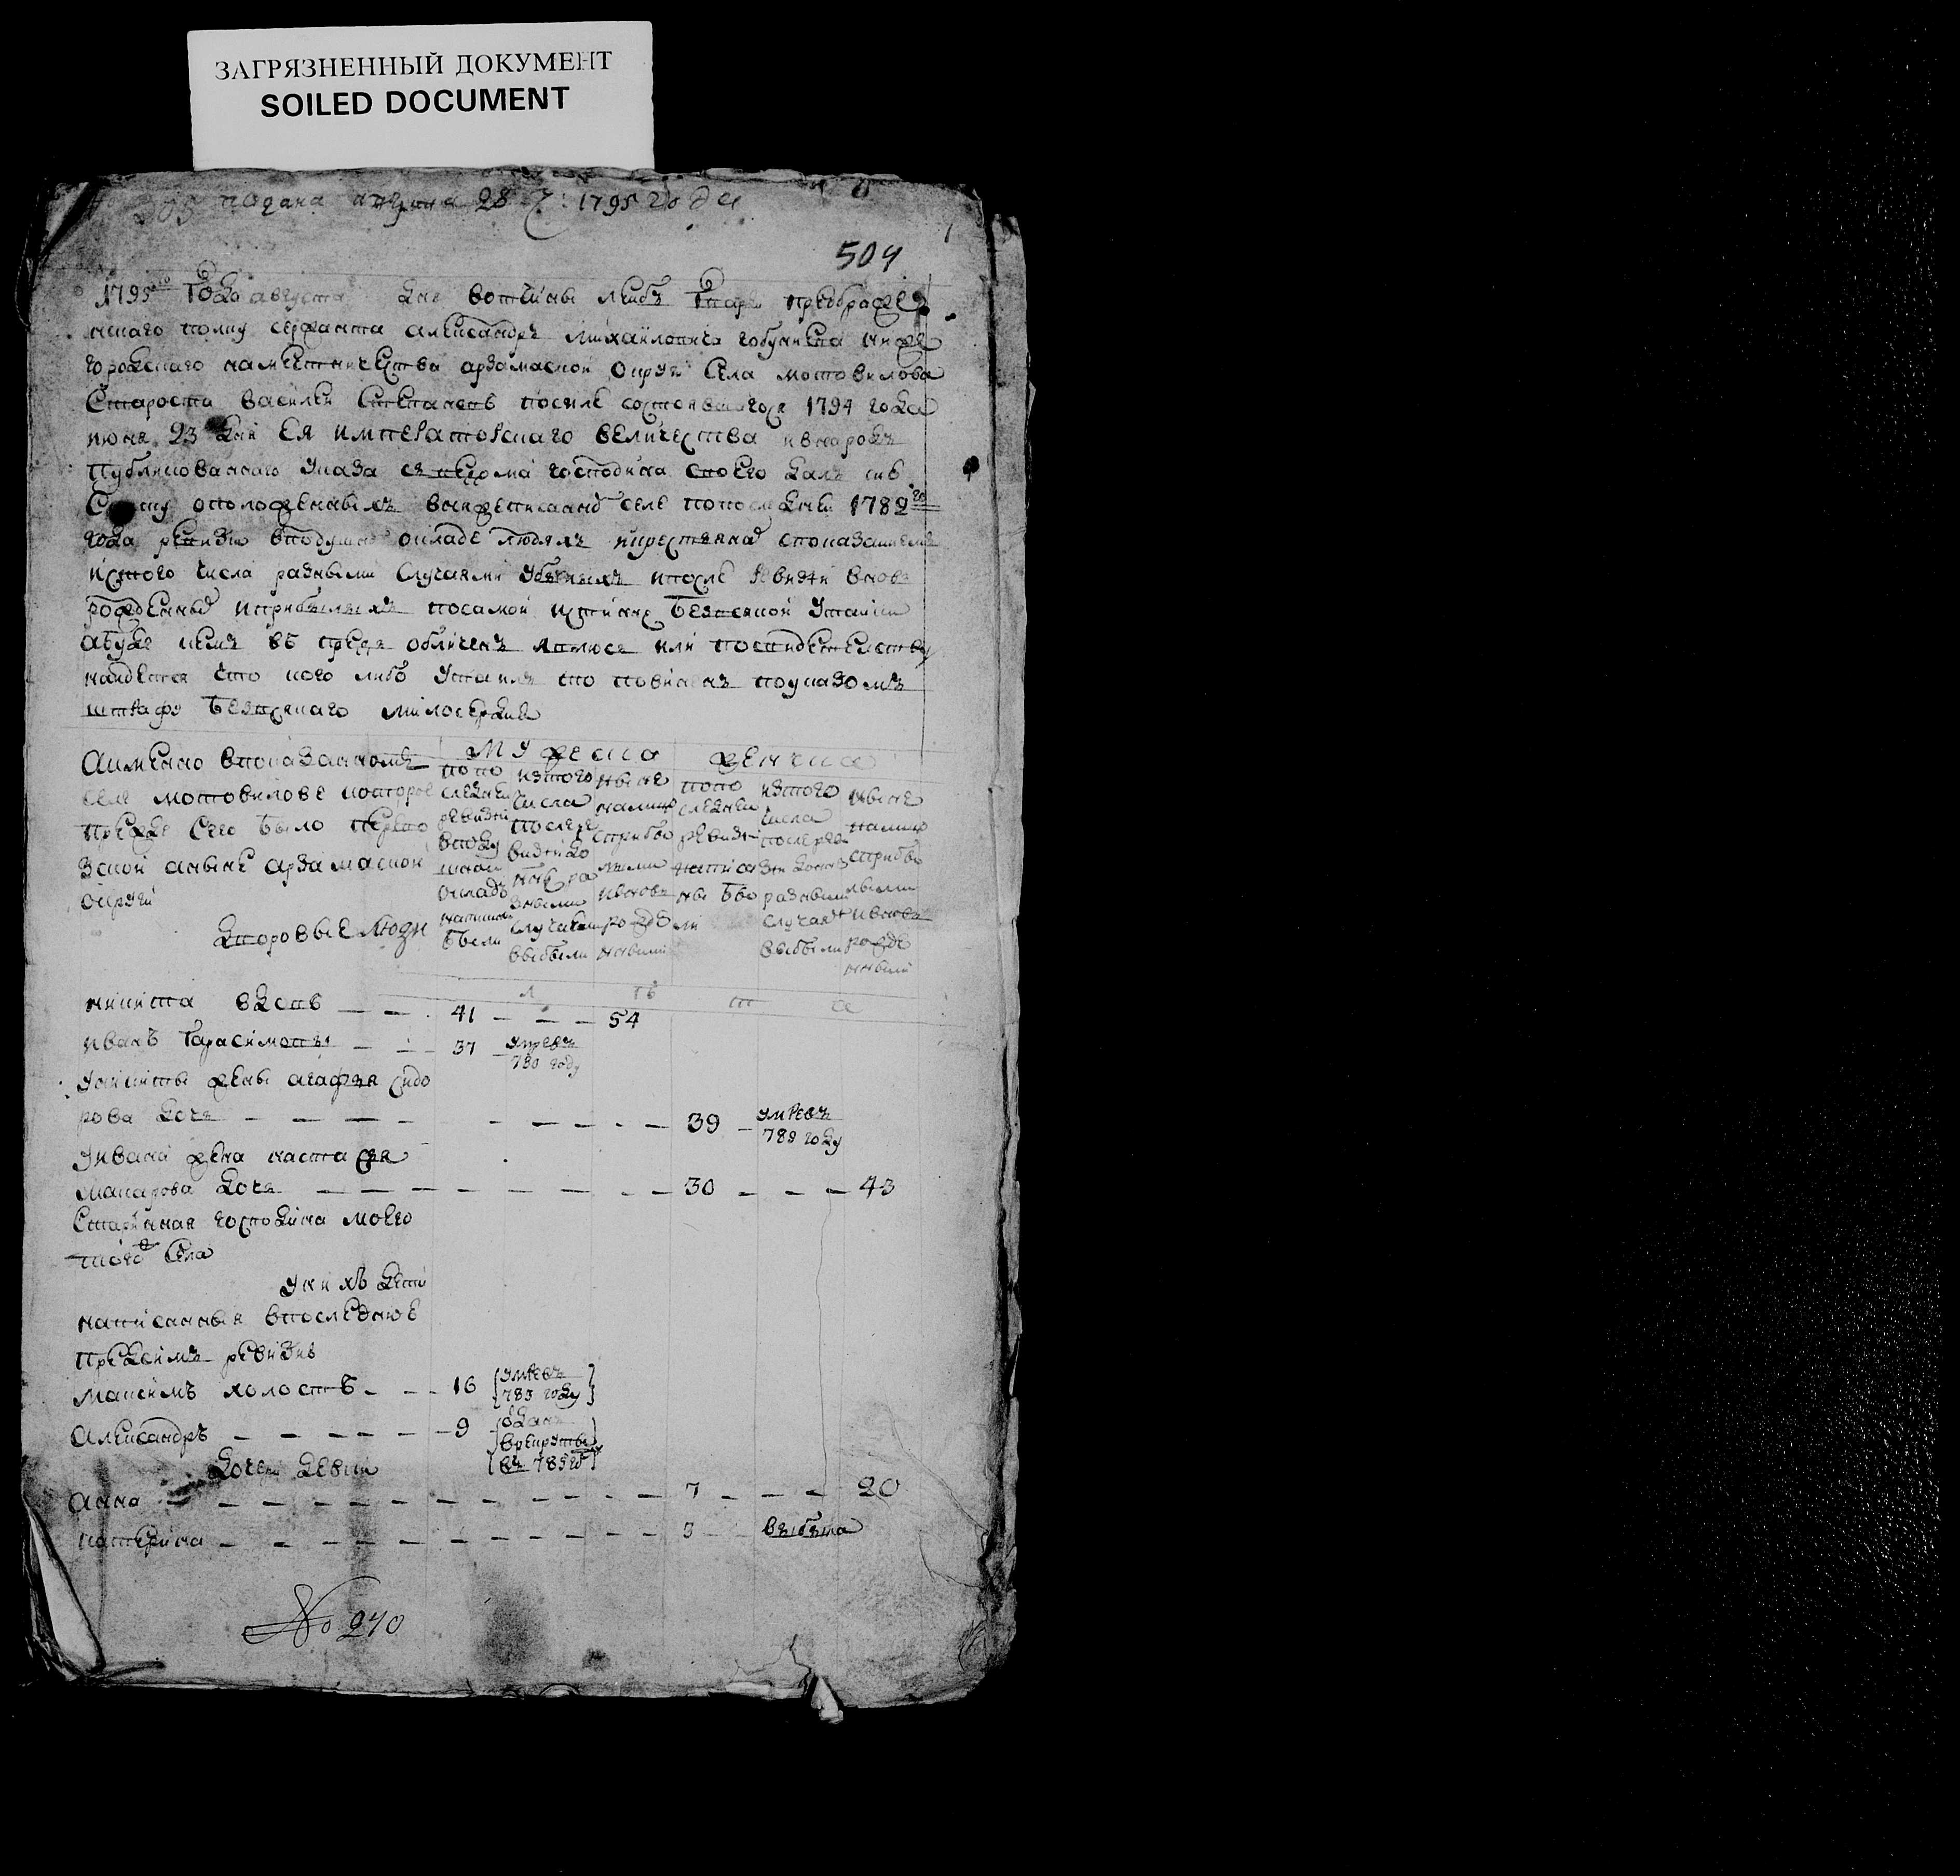 ЗАГРЯЗНЕННЫЙ ДОКУМЕНТ
SOILED DOCUMENT
305 подана августа 28 ч: 1795 года
504
1795 года августа дня вотчины лейбъ гвардіи преображе
нскаго полку сержанта александръ михаиловича ниже
городскаго наместничества арзамаской округи села мотовилова
староста василеи степановъ посиле состоявшагося 1794 года
июня 23 дня Ея императорскаго величества и в народъ
публикованнаго указа съ ведома господина своего далъ сию
скаску о положенныхъ в вышеписанномъ селе по последнеи 1782 го
года ревизіи в подушномъ окладе людяхъ и крестьянахъ с показаниемъ
ис того числа разными случаями убылыхъ и после ревизіи вновь
рожденныхъ и прибылыхъ по самой истинне без всякой утайки
а буде кемъ в предь обличенъ явлюся или по свидетелству
найдется что кого либо утаилъ то повиненъ по указомъ
штрафу без всякаго милосердия
А имянно в показанномъ
селе мотовилове которое
прежде сего было перево
зской а ныне арзамаской
округи
дворовые люди
мужеска
женска
по по
следней
ревизіи
в поду
шной
окладъ
написаны
были
из того
числа
после ре
визіи до
ныне ра
зными
случаями
выбыли
ныне
на лицо
с прибы
лыми
и вновь
рожде
нными
по по
следней
ревизіи
написа
ны бы
ли
из того
числа
после реви
зіи до ныне
разными
случаями
выбыли
ныне
на лицо
с прибы
лыми
и вновь
рожде
нными
л е т а
никита вдовъ — — 41 — — — 54
иванъ Гарасимовъ — — 37 — умре въ
790 году
у никиты жена агафья сидо
рова дочь — — — — 39 — умре въ
789 году
у ивана жена настасья
макарова дочь — — — — 30 — — — 43
старинная господина моего
того ж села
у них дети
написанныя в последнюю
пред симъ ревизию
максимъ холостъ — — 16 умре въ
783 году
александръ — — — — 9 отданъ
в рекруты
въ 785 го
дочери девки
анна — — — — 7 — — — 20
катерина — — — — выбыла
№ 270